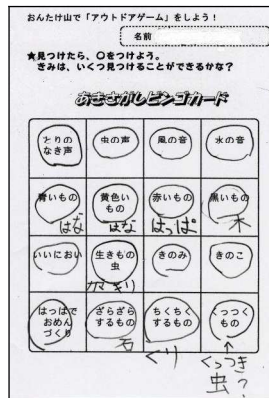 おんたけ山で「アウトドアゲーム」をしよう！
名前
★見つけたら、○をつけよう。
きみは、いくつ見つけることができるかな？
あきさがしビンゴカード
とりの
なき声
虫の声
風の音
水の音
青いもの
はな
黄色い
もの
はな
赤いもの
はっぱ
黒いもの
木
いいにおい
生きもの
虫
きのみ
きのこ
はっぱで
おめん
づくり
ざらざら
するもの
石
ちくちく
するもの
くり
くっつく
もの
くっつき
虫?